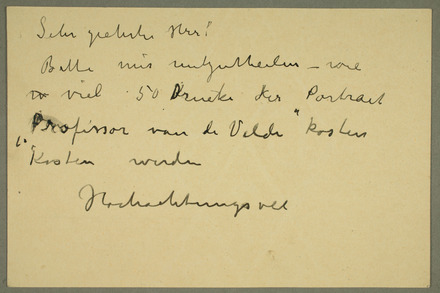 Sehr geehrter Herr!
Bitte mir mitzutheilen – wie
viel 50 Drucke des Portrait
„Professor van de Velde" kosten
kosten werden
Hochachtungsvoll